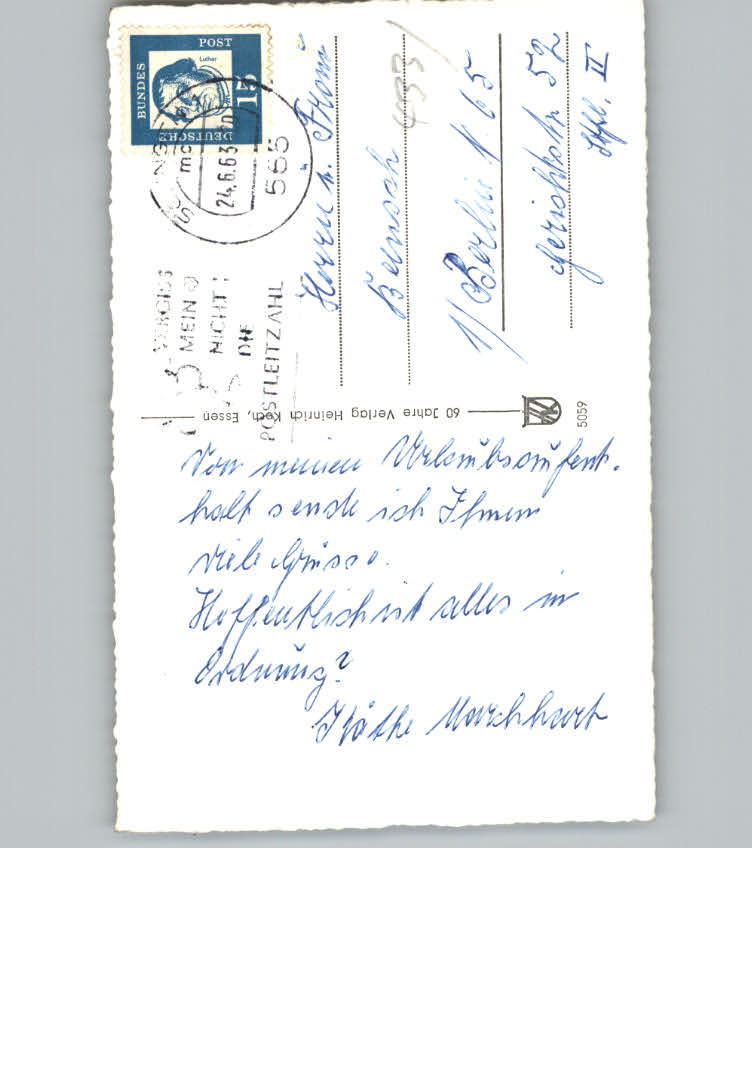 BUNDES
POST
Luther
15
DEUTSCHE
SOLINGEN
24.6.63
565
VERGISS
MEIN
NICHT!
DIE
POSTLEITZAHL
Herrn u. Frau
1/ Berlin N. 65
Gerichtstr. 52
Stfl. II
433/
60 Jahre Verlag Heinrich Koch, Essen
5059
Von meinen Urlaubsaufent-
halt sende ich Ihnen
viele Grüsse.
Hoffentlich ist alles in
Ordnung?
Käthe